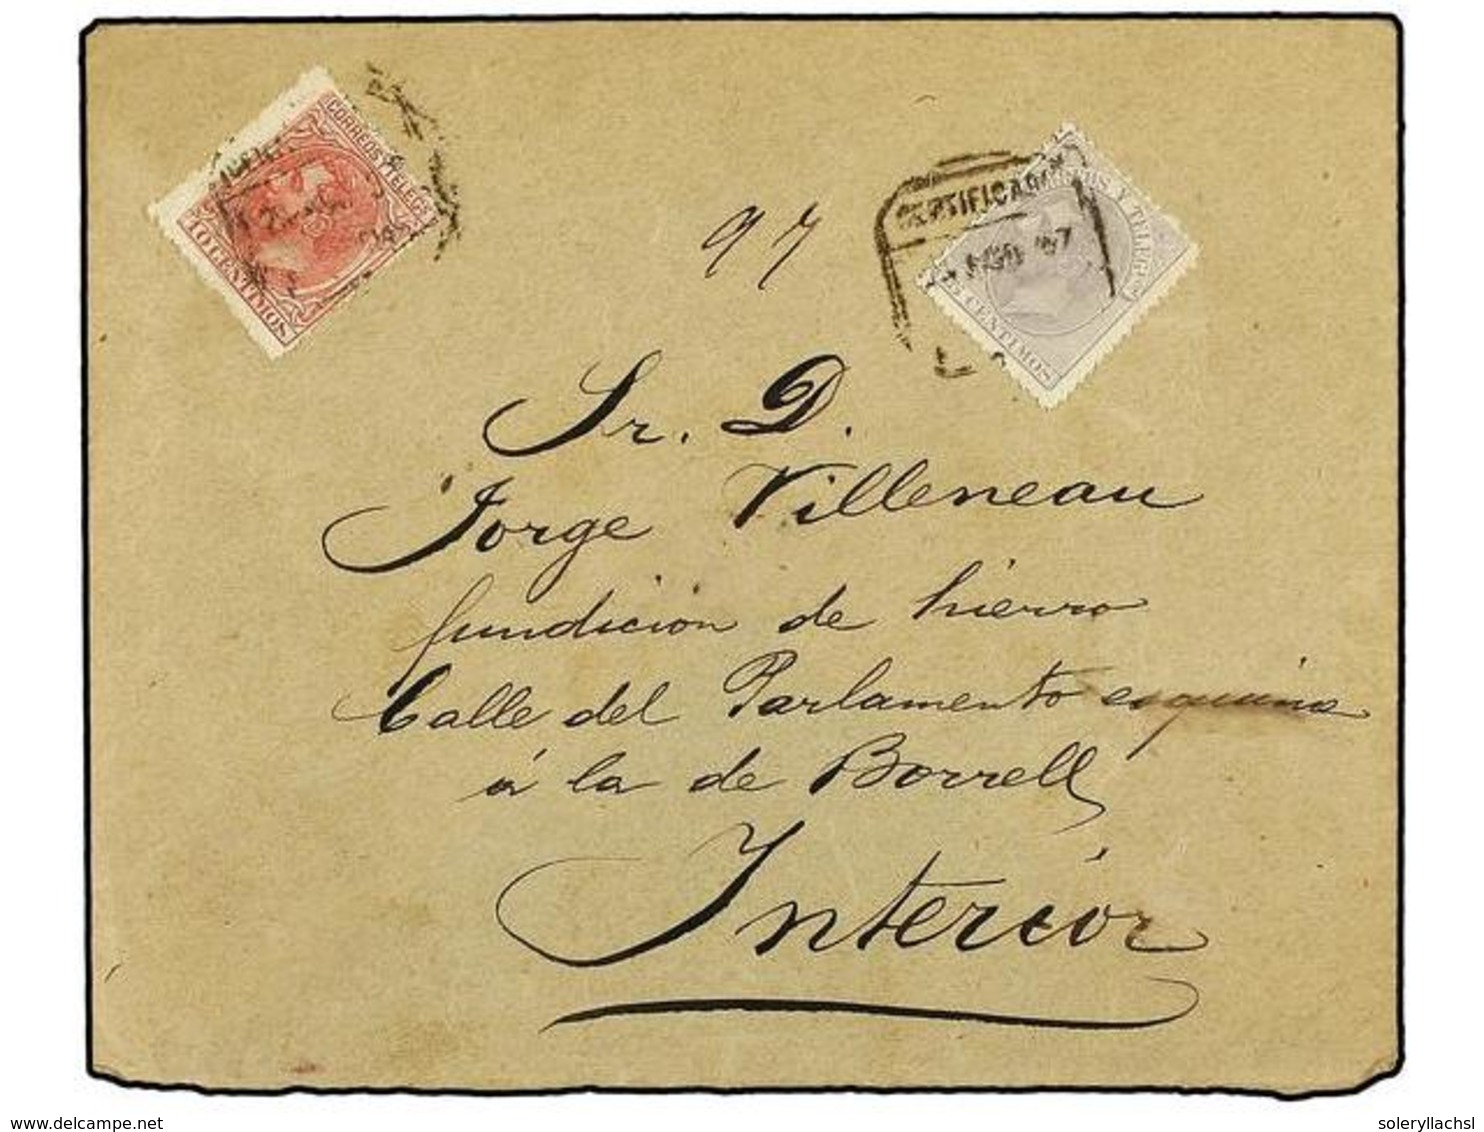 CORREOS Y TELEGS
10 CENTIMOS
CERTIFICADO
Y TELEGS
CENTIMOS
97
Sr. D.
Jorge Villeneau
fundicion de hierro
Calle del Parlamento esquina
á la de Borrell
Interior
delcampe.net
soleryllachsl